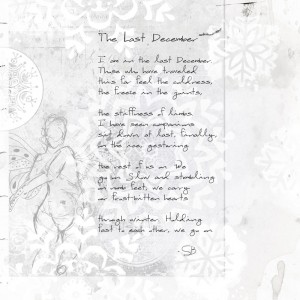 The Last December
I am in the last December
Those who have traveled
this far feel the coldness,
the freeze in the joints,
the stiffness of limbs.
I have seen companions
sit down at last, finally,
in the ice, gesturing
the rest of us on. We
go on. Slow and stumbling
on numb feet, we carry
our frost-bitten hearts
through winter. Holding
fast to each other, we go on
SB